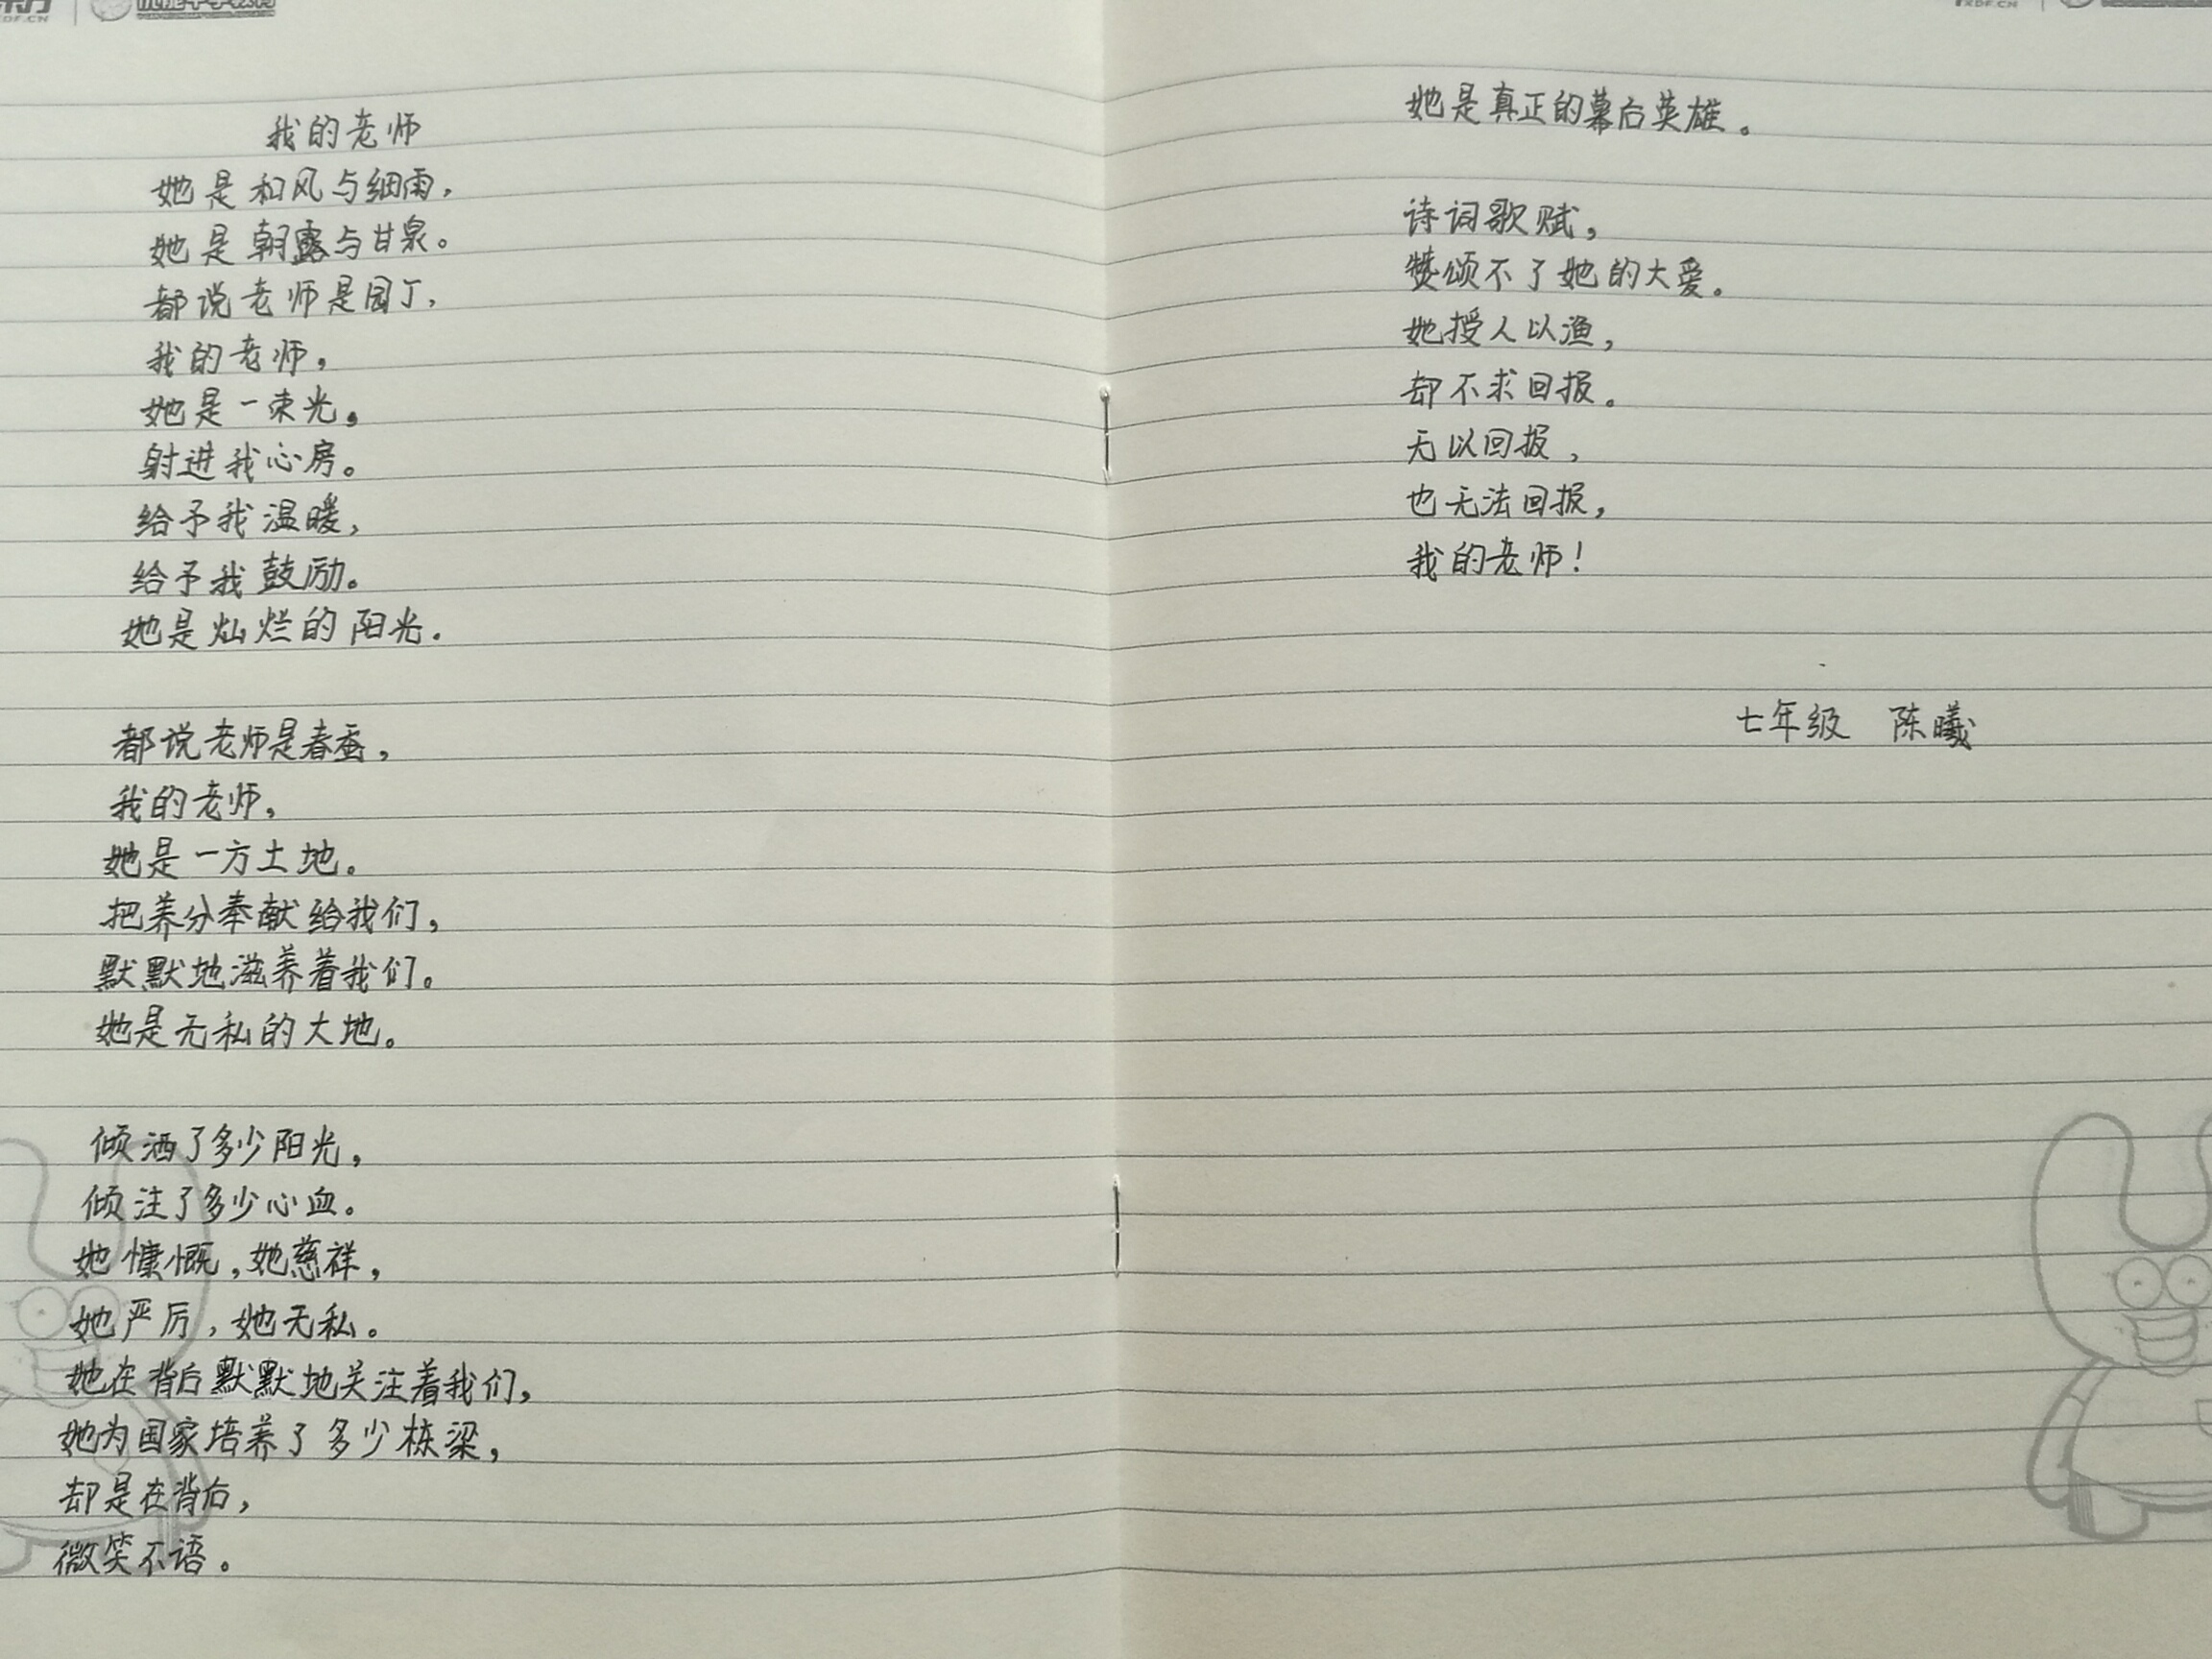 我的老师
她是和风与细雨,
她是朝露与甘泉。
都说老师是园丁,
我的老师,
她是一束光,
射进我心房。
给予我温暖,
给予我鼓励。
她是灿烂的阳光.
都说老师是春蚕,
我的老师,
她是一方土地。
把养分奉献给我们,
默默地滋养着我们。
她是无私的大地。
倾洒了多少阳光,
倾注了多少心血。
她慷慨,她慈祥,
她严厉,她无私。
她在背后默默地关注着我们,
她为国家培养了多少栋梁,
却是在背后,
微笑不语。
她是真正的幕后英雄。
诗词歌赋,
赞颂不了她的大爱。
她授人以渔,
却不求回报。
无以回报,
也无法回报,
我的老师!
七年级 陈曦